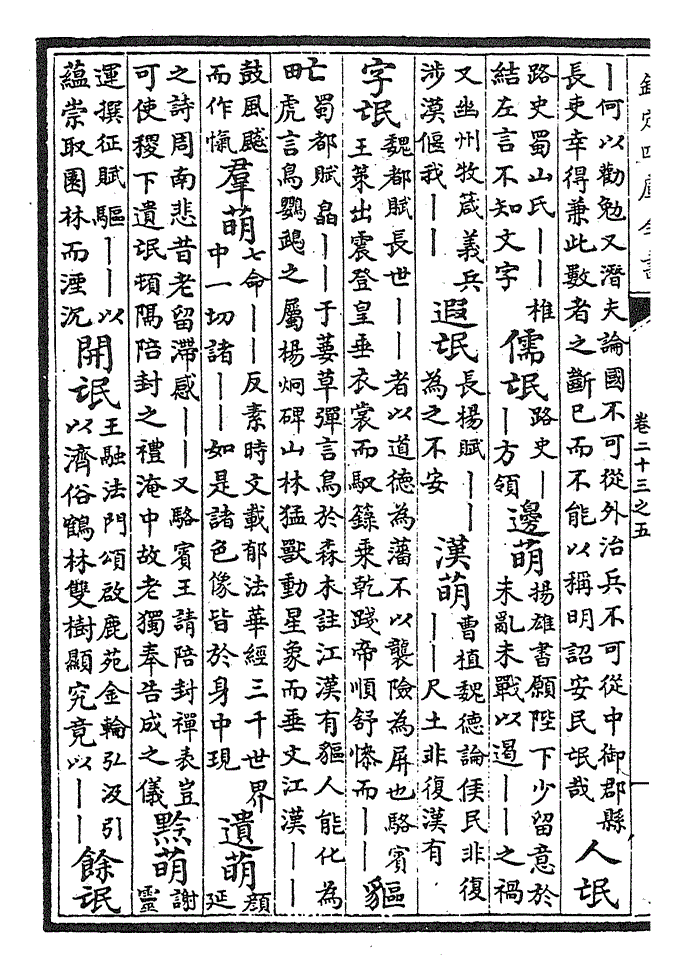 欽定四庫全書
卷二十三之五
｜何以勸勉又潛夫論國不可從外治兵不可從中御郡縣
長吏幸得兼此數者之斷已而不能以稱明詔安民氓哉
人氓
路史蜀山氏｜｜椎
結左言不知文字
儒氓
路史｜
｜方領
邊萌
揚雄書願陛下少留意於
未亂未戰以遏｜｜之禍
又幽州牧箴義兵
涉漠偃我｜｜
遐氓
長揚賦｜｜
為之不安
漢萌
曹植魏德論侯民非復
｜｜尺土非復漢有
字氓
魏都賦長世｜｜者以道德為藩不以襲險為屏也駱賓
王策出震登皇垂衣裳而馭籙乘乾踐帝順舒慘而｜｜
貙
甿
蜀都賦皛｜｜于葽草彈言鳥於森木註江漢有貙人能化為
虎言鳥鸚鵡之屬楊炯碑山林猛獸動星象而垂文江漢｜｜
鼓風飇
而作愾
羣萌
七命｜｜反素時文載郁法華經三千世界
中一切諸｜｜如是諸色像皆於身中現
遺萌
顔
延
之詩周南悲昔老留滯感｜｜又駱賓王請陪封禪表豈
可使稷下遺氓頓隔陪封之禮淹中故老獨奉告成之儀
黔萌
謝
靈
運撰征賦驅｜｜以
蘊崇取園林而湮沉
開氓
王融法門頌啟鹿苑金輪弘汲引
以濟俗鶴林雙樹顯究竟以｜｜
餘氓